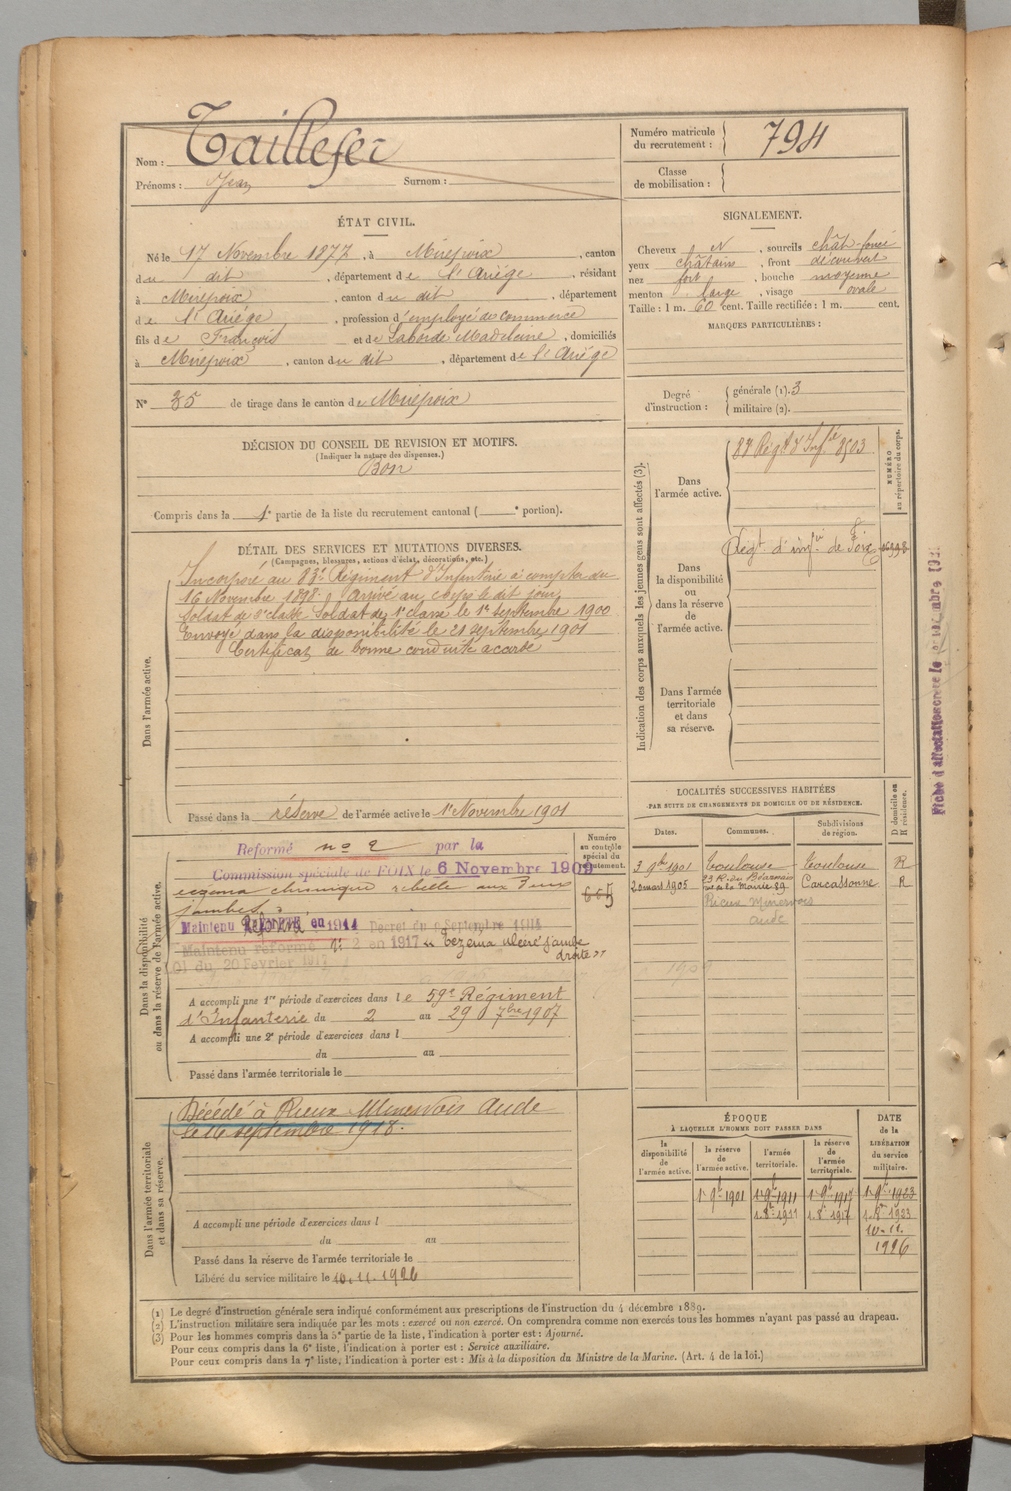 Nom : Taillefer
Prénoms : Jean Surnom :
Numéro matricule du recrutement : 794
Classe de mobilisation :
ÉTAT CIVIL.
Né le 17 Novembre 1877, à Mirepoix, canton
du dit, département de l'Ariège, résidant
à Mirepoix, canton du dit, département
de l'Ariège, profession d'employé de commerce
fils de François et de Laborde Madeleine, domiciliés
à Mirepoix, canton du dit, département de l'Ariège
N° 35 de tirage dans le canton de Mirepoix
SIGNALEMENT.
Cheveux N, sourcils chât-foncé
yeux châtains, front découvert
nez fort, bouche moyenne
menton large, visage ovale
Taille : 1 m. 60 cent. Taille rectifiée : 1 m. cent.
MARQUES PARTICULIÈRES :
Degré d'instruction : générale (1). 3
militaire (2).
DÉCISION DU CONSEIL DE REVISION ET MOTIFS.
(Indiquer la nature des dispenses.)
Bon
Compris dans la 1e partie de la liste du recrutement cantonal ( e portion).
DÉTAIL DES SERVICES ET MUTATIONS DIVERSES.
(Campagnes, blessures, actions d'éclat, décorations, etc.)
Dans l'armée active.
Incorporé au 83e Régiment d'Infanterie à compter du
16 Novembre 1898. Arrivé au corps le dit jour
Soldat de 2e classe. Soldat de 1e classe le 1er septembre 1900
Envoyé dans la disponibilité le 21 septembre 1901
Certificat de bonne conduite accordé
Passé dans la réserve de l'armée active le 1er Novembre 1901
Indication des corps auxquels les jeunes gens sont affectés (3).
NUMÉRO au répertoire du corps.
Dans l'armée active.
Régt d'infie de Foix
Dans la disponibilité ou dans la réserve de l'armée active.
Dans l'armée territoriale et dans sa réserve.
Dans la disponibilité ou dans la réserve de l'armée active.
Numéro au contrôle spécial du recrutement.
Reformé no 2 par la
Commission spéciale de FOIX le 6 Novembre 1909
eczema chronique rebelle aux deux
jambes
Maintenu Réformé en 1914 Decret du 9 Septembre 1914
Maintenu réformé n° 2 en 1917 "Eczema ulceré jambe
droite"
du 20 Fevrier 1917
A accompli une 1re période d'exercices dans le 59e Régiment
d'Infanterie du 2 au 29 7bre 1907
A accompli une 2e période d'exercices dans l
du au
Passé dans l'armée territoriale le
Dans l'armée territoriale et dans sa réserve.
Décédé à Rieux Minervois Aude
le 16 septembre 1918.
A accompli une période d'exercices dans l
du au
Passé dans la réserve de l'armée territoriale le
Libéré du service militaire le 10.11.1926
LOCALITÉS SUCCESSIVES HABITÉES
PAR SUITE DE CHANGEMENTS DE DOMICILE OU DE RÉSIDENCE.
Dates. Communes. Subdivisions de région. D domicile ou R résidence.
3 9bre 1901 Toulouse Toulouse R
20 mars 1905 Carcassonne R
Rieux Minervois
Aude
ÉPOQUE
À LAQUELLE L'HOMME DOIT PASSER DANS
la disponibilité de l'armée active.
la réserve de l'armée active.
l'armée territoriale.
la réserve de l'armée territoriale.
DATE de la LIBÉRATION du service militaire.
1er 9bre 1901 1er 9bre 1911 1er 9bre 1917 1er 9bre 1923
1. 8bre 1911 1. 8bre 1917 1. 8bre 1923
10-11.
1926
(1) Le degré d'instruction générale sera indiqué conformément aux prescriptions de l'instruction du 4 décembre 1889.
(2) L'instruction militaire sera indiquée par les mots : exercé ou non exercé. On comprendra comme non exercés tous les hommes n'ayant pas passé au drapeau.
(3) Pour les hommes compris dans la 5e partie de la liste, l'indication à porter est : Ajourné.
Pour ceux compris dans la 6e liste, l'indication à porter est : Service auxiliaire.
Pour ceux compris dans la 7e liste, l'indication à porter est : Mis à la disposition du Ministre de la Marine. (Art. 4 de la loi.)